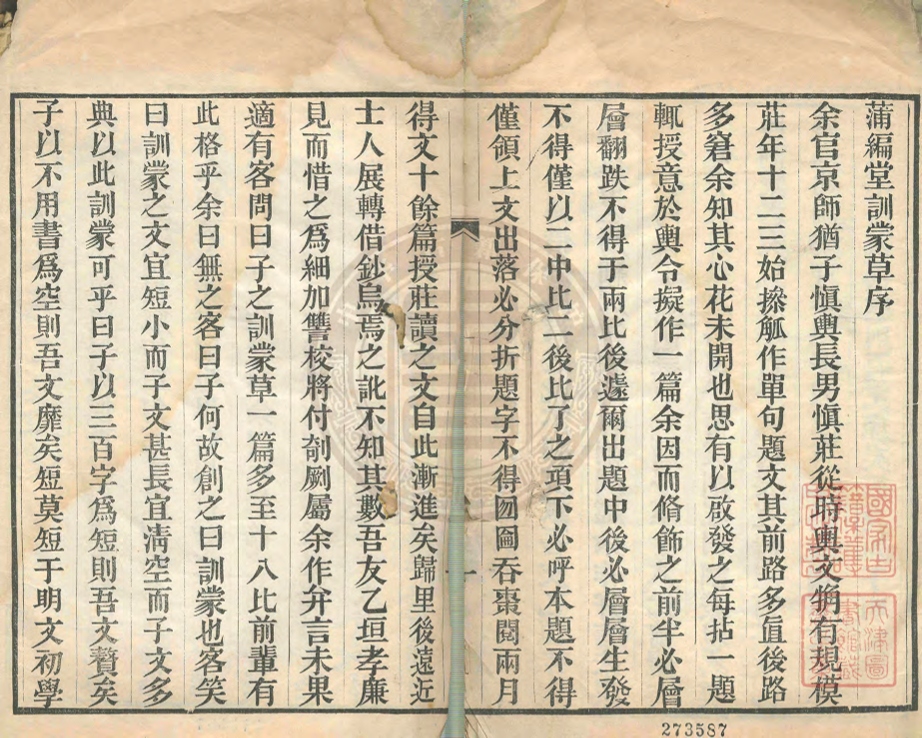 蒲編堂訓蒙草序
余官京師猶子愼輿長男愼莊從時輿文稍有規模
莊年十二三始搡觚作單句題文其前路多直後路
多窘余知其心花未開也思有以啟發之每拈一題
輒授意於輿令擬作一篇余因而脩飾之前半必層
層翻跌不得于兩比後遽爾出題中後必層層生發
不得僅以二中比二後比了之項下必呼本題不得
僅領上文出落必分折題字不得囫圇吞棗閱兩月
得文十餘篇授莊讀之文自此漸進矣歸里後遠近
士人展轉借鈔烏焉之訛不知其數吾友乙垣孝廉
見而惜之爲細加讐校將付剞劂屬余作弁言未果
適有客問曰子之訓蒙草一篇多至十八比前輩有
此格乎余曰無之客曰子何故創之曰訓蒙也客笑
曰訓蒙之文宜短小而子文甚長宜淸空而子文多
典以此訓蒙可乎曰子以三百字爲短則吾文贅矣
子以不用書爲空則吾文靡矣短莫短于明文初學
一
國家古
籍
天津圖
書館藏
273587